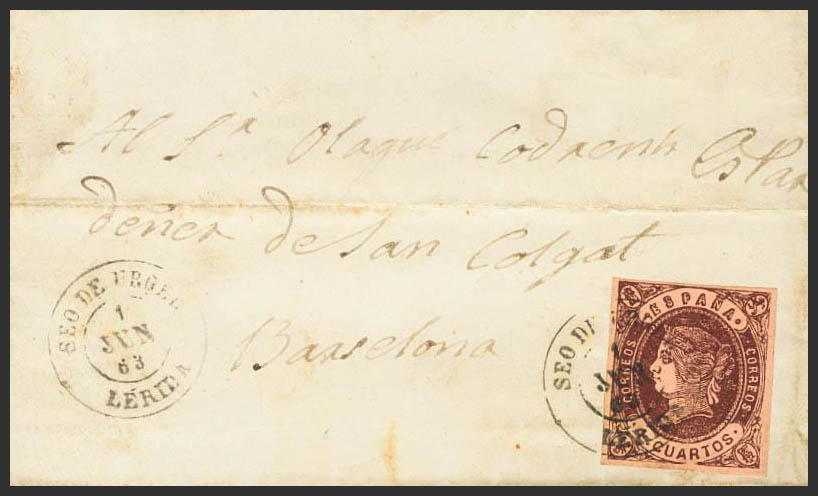 Al Sr Olague Codrenir Espar
deñer de San Colgat
Barcelona
SEO DE URGEL
1
JUN
63
LÉRIDA
SEO DE
JUN
LÉRIDA
ESPAÑA
CORREOS
CORREOS
CUARTOS